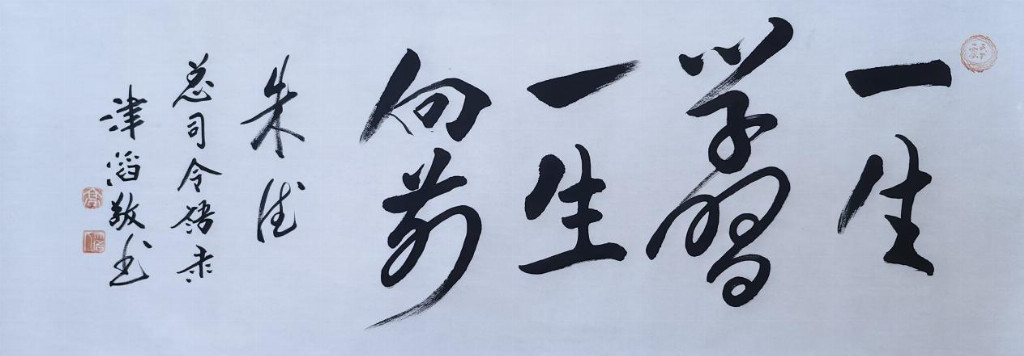 一生
学习
一生
向前
朱德
总司令语录
津滔敬书